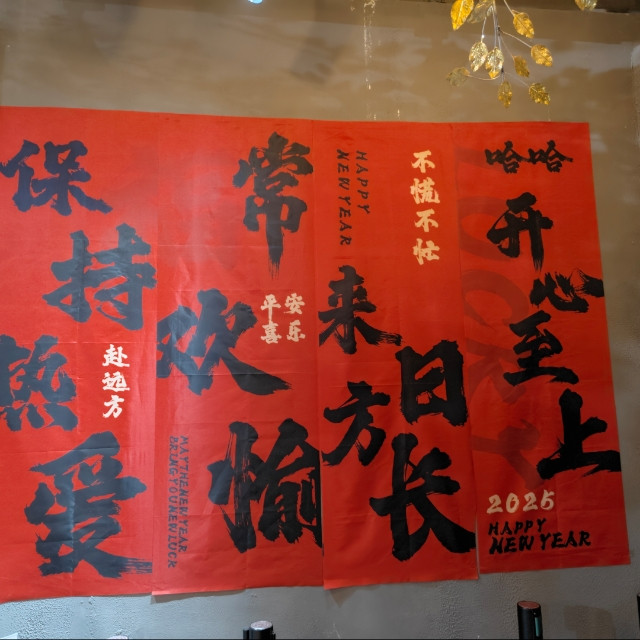 保持热爱
赴远方
常欢愉
平安喜乐
MAY THE NEW YEAR
BRING YOU NEW LUCK
HAPPY
NEW YEAR
不慌不忙
来日方长
哈哈
开心至上
LUCKY
2025
HAPPY
NEW YEAR